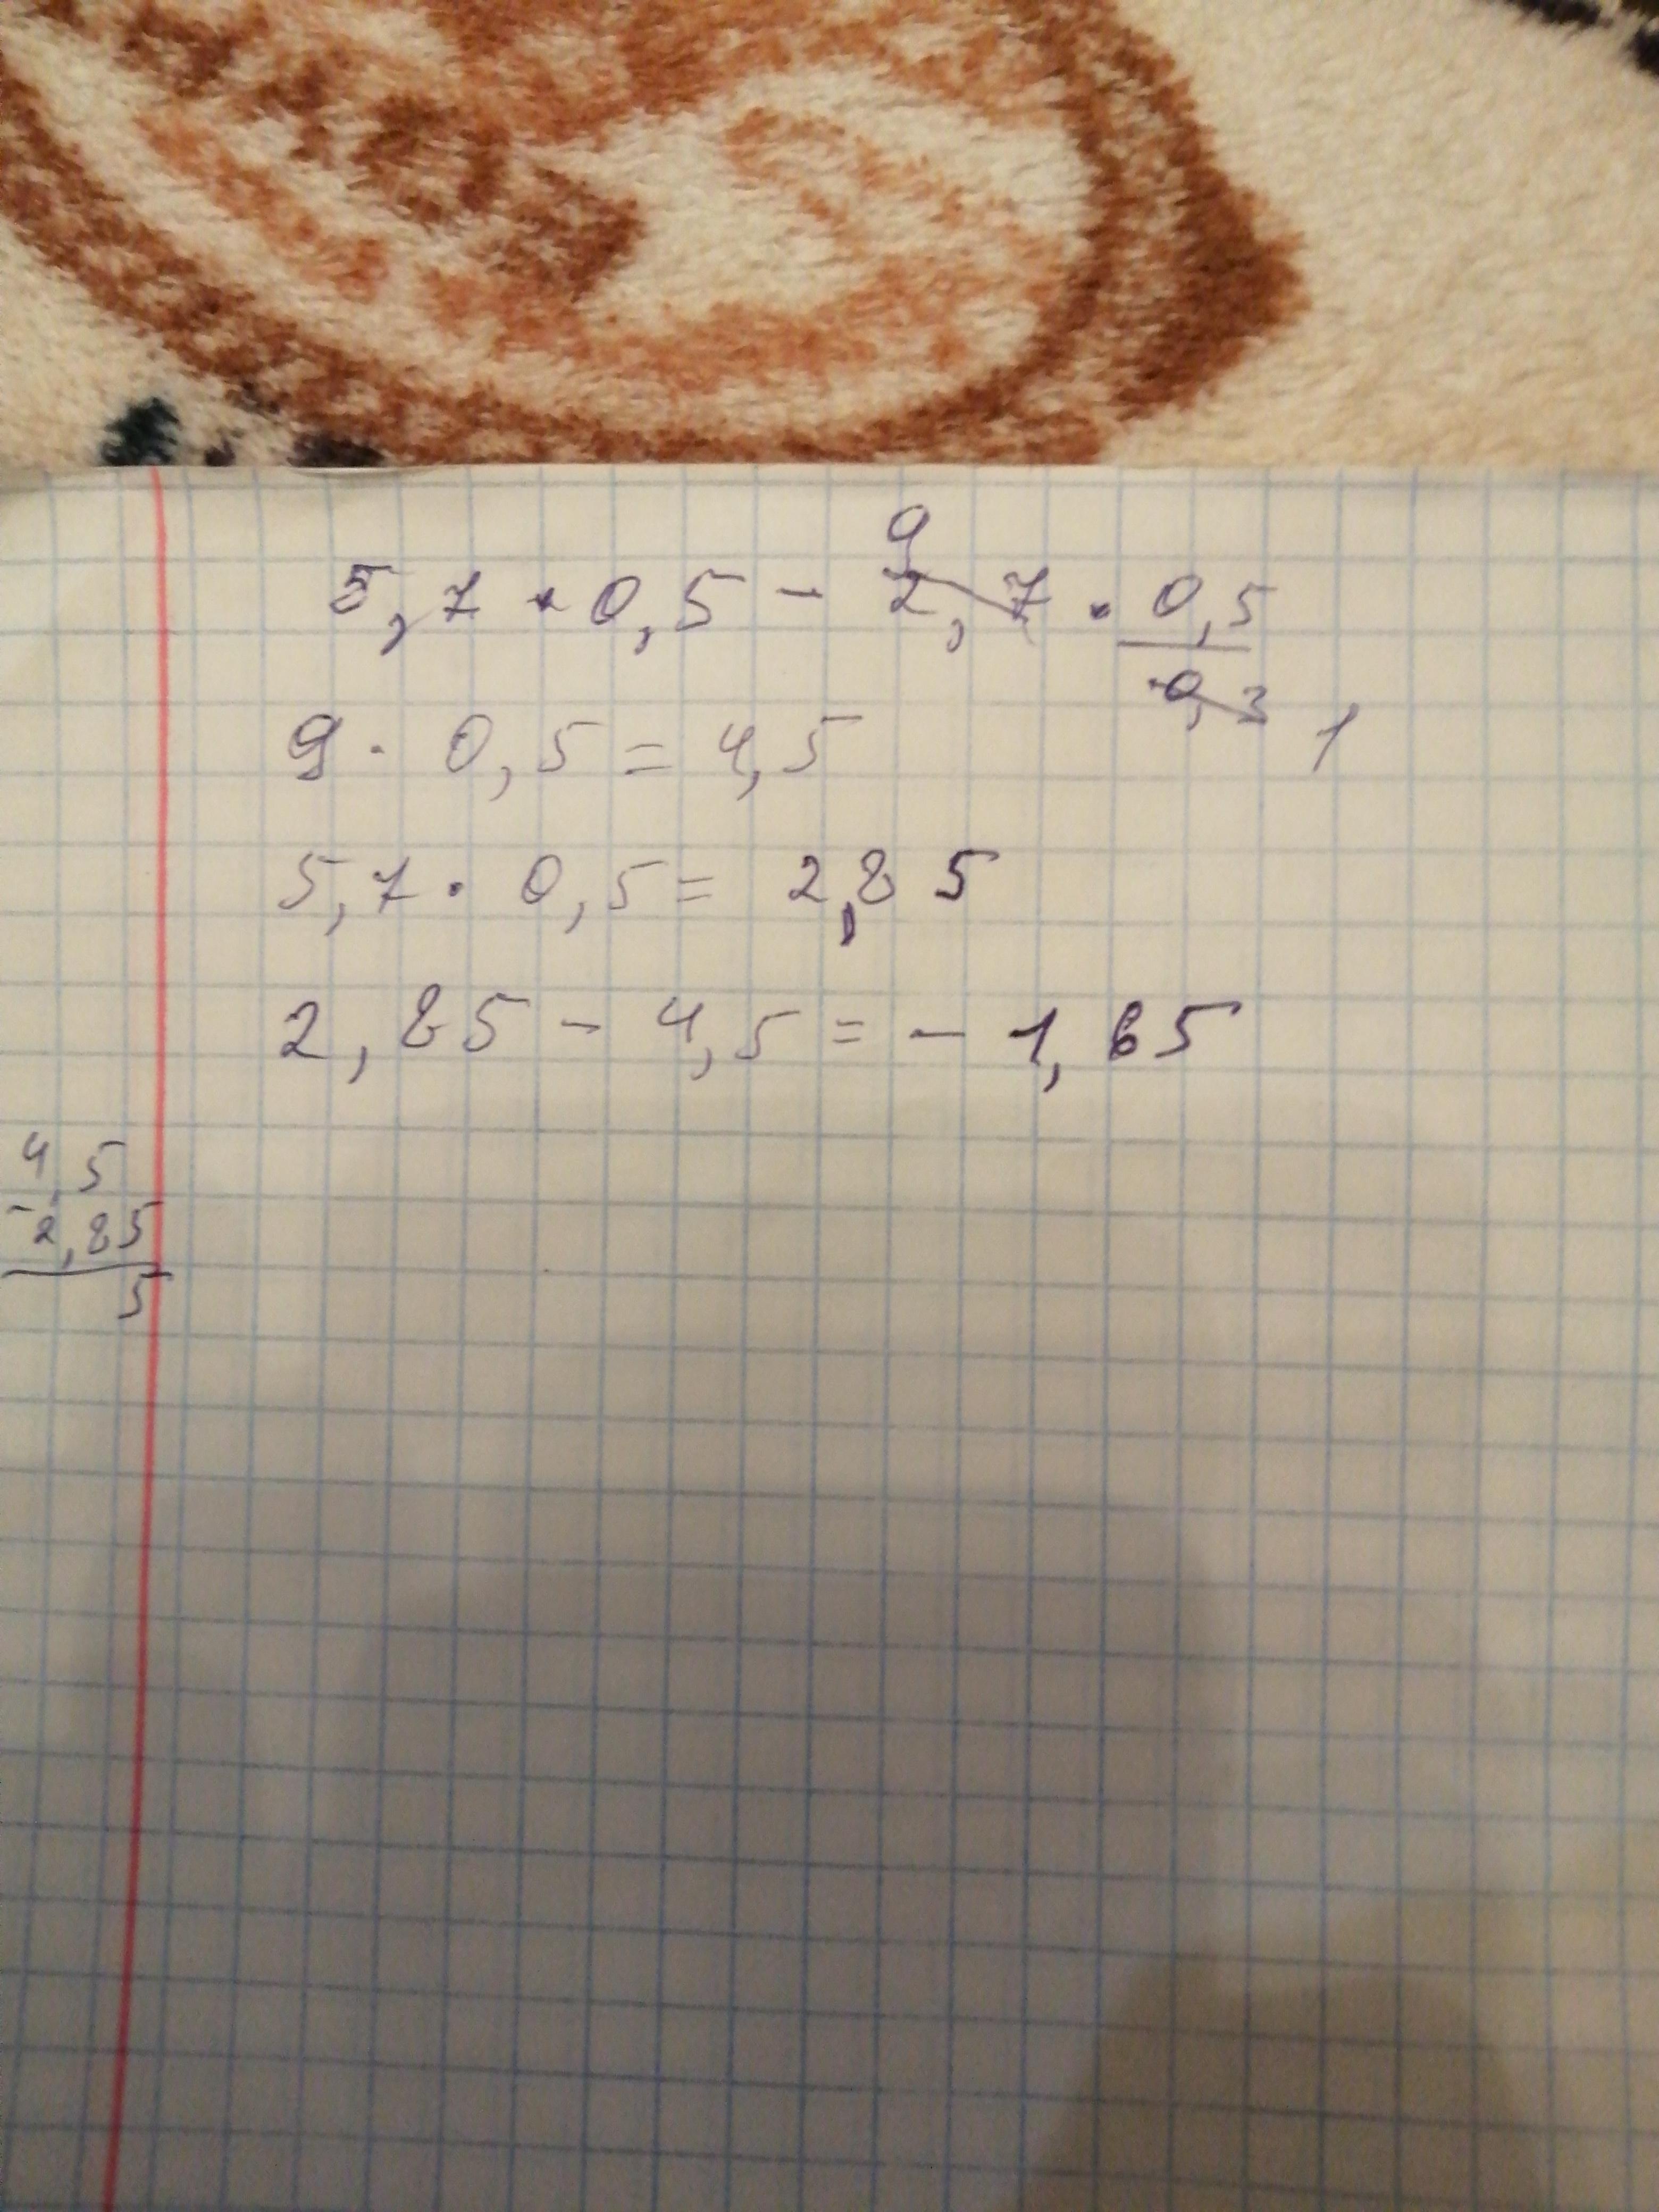 9
5,7 · 0,5 - 2,7 · 0,5
0,3 1
9 · 0,5 = 4,5
5,7 · 0,5 = 2,85
2,85 - 4,5 = - 1,65
4,5
-2,85
5